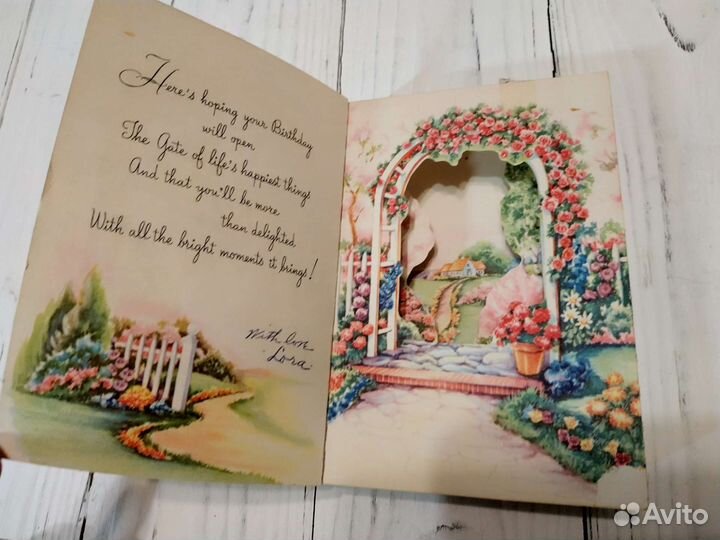 Here's hoping your Birthday
will open
The Gate of life's happiest things
And that you'll be more
than delighted
With all the bright moments it brings!
With love
Lora
Avito